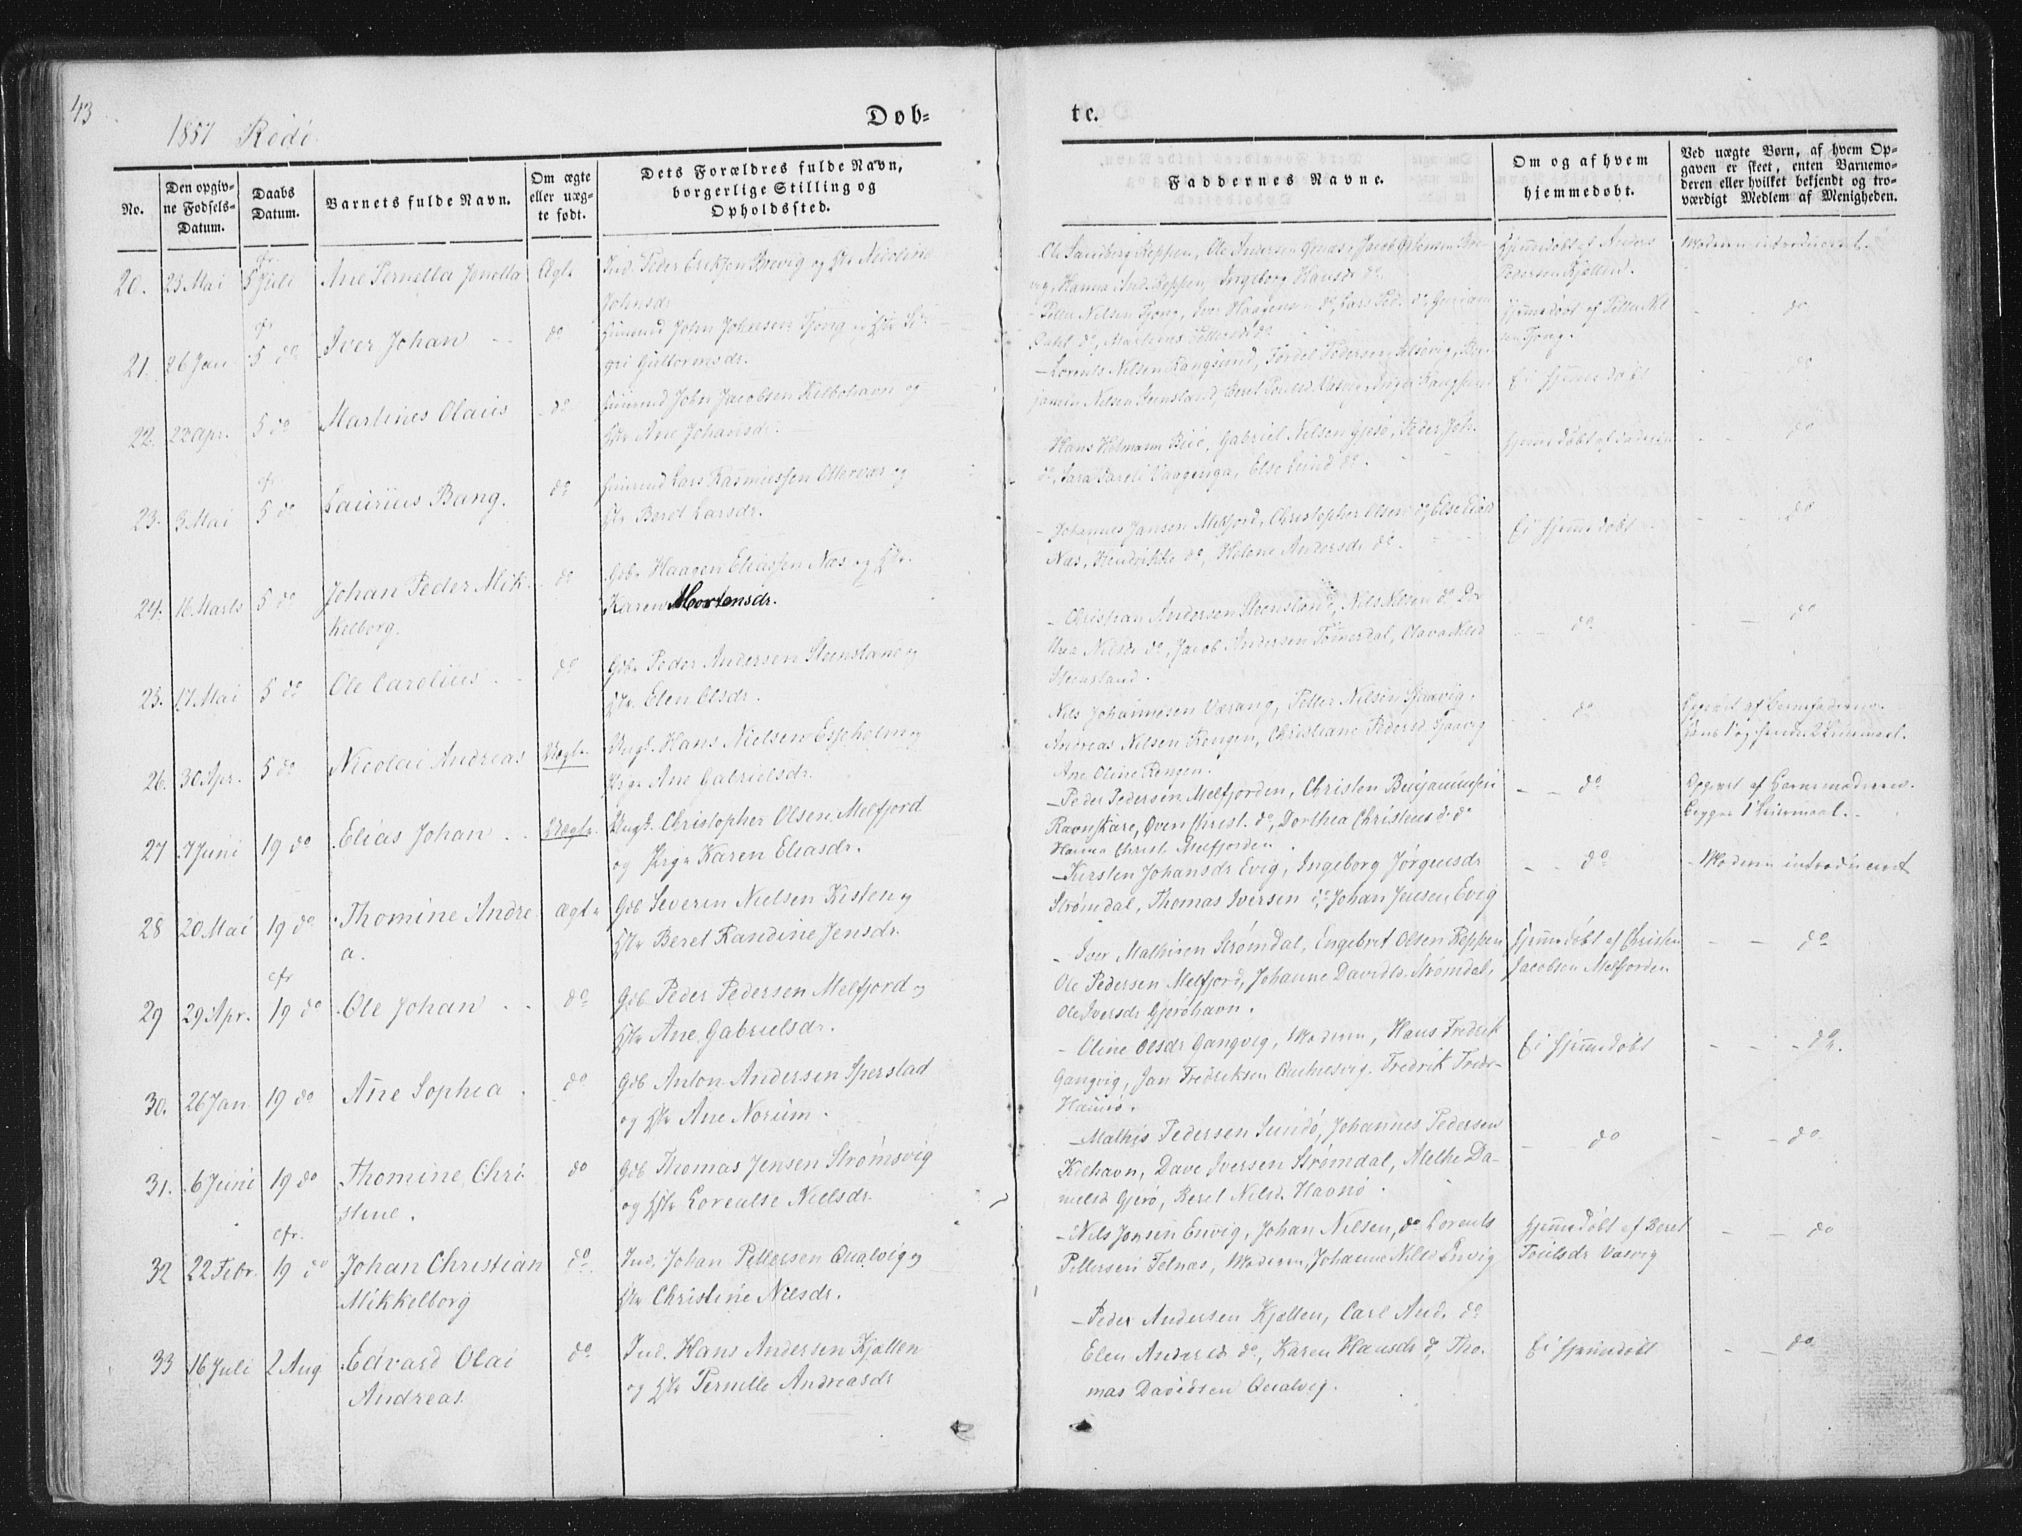 43
1857 Rödö
Døb-
te.
No.
Den opgiv-
ne Fødsels-
Datum.
Daabs
Datum.
Barnets fulde Navn.
Om ægte
eller uæg-
te født.
Dets Forældres fulde Navn,
borgerlige Stilling og
Opholdssted.
Faddernes Navne.
Om og af hvem
hjemmedøbt.
Ved uægte Børn, af hvem Op-
gaven er skeet, enten Barnemo-
deren eller hvilket bekjendt og tro-
værdigt Medlem af Menigheden.
20. 25 Mai 5 Juli Ane Pernella Jonella Ægte Ind. Peder Eriksen Brevig og Hr Nicoline
Johnsdr
Ole Sandberg Reppen, Ole Andersen
Hanna And. Reppen, Ingeborg Hansdr do
Hjemmedøbt af Anders
Pedersen Kjellen.
Moderen introduceret.
21. 26 Jan 5 do Iver Johan do John Johnsen Tjong og Hr Si-
gri Guttormsdr.
Petter Nilsen Tjong, Iver Haagensen do, Lars Ped. do,
do, Marthens Pettersdr do
Hjemmedøbt af Petter Nil
sen Tjong.
do
22. 22 Apr. 5 do Martines Olaus do John Jacobsen Kilbohavn og
Hr Ane Johansdr.
Lorents Nilsen Rangsund, Tordel Pedersen Selsövig,
Nilsen Steensland, Beret Poulsd. Vasvig, Inger Rangsund
Ei hjemedøbt
do
23. 3 Mai cfr 5 do Laurius Bang. do Lars Rasmussen Ottervær og
Hr Beret Larsdr.
Hans Hilmann Bisö, Gabriel Nilsen Gjesö, Peder Joh.
do, Sara Vaagenga, Else Lund do.
do
24. 16 Marts 5 do Johan Peder Mik-
kelborg.
do Gdb. Haagen Eliassen Næs og Hr.
Karen Mortensdr.
Johannes Jansen Melfjord, Christopher Olsen do, Else Eliasd
Næs, Hendrikke do, Helene Andersdr do.
Ei hjemmedøbt
do
25. 17 Mai 5 do Ole Carelius do Gdb. Peder Andersen Steensland og
Hr. Elen Olsdr.
Christian Andersen Steensland, Nils Nilsen do Dor
thea Nilsdr do, Jacob Andersen Tömerdal, Olava Nilsd
Steensland.
do
do
26. 30 Apr. 5 do Nicolai Andreas Uægte Ungk. Hans Nielsen Espeholm og
Pige Ane Gabrielsdr.
Nils Johannesen Værang, Petter Nilsen Gjervig.
Andreas Nilsen Rengen, Christiane Pedersd Gjervig
Ane Oline Rengen.
do
Opgivet af Barnefaderen.
Hans 1 og hendes 2 Leiermaal.
27 7 Juni 19 do Elias Johan Uægte. Ungk. Christopher Olsen Melfjord
og Pige Karen Eliasdr.
Peder Pedersen Melfjorden, Christen Benjaminsen
Ravnskare, Oven Christ. do, Dorthea Christensdr do
Hanna Christ. Melfjorden.
do
Opgivet af Barnemoderen.
Begges 1 Leiermaal.
28 20 Mai 19 do Thomine Andre
a.
Ægte Gdb Severin Nielsen Kisten og
Hr Beret Randine Jensdr.
Kirsten Johansdr Evig, Ingeborg Jörgensdr
Strömdal, Thomas Iversen do Johan Jensen Evig
do
Moderen introduceret
29 29 Apr. cfr 19 do Ole Johan do Gdb Peder Pedersen Melfjord og
Hr Ane Gabrielsdr.
Iver Mathisen Strömdal, Engebret Olsen Reppen
Ole Pedersen Melfjord, Johanne Davidsd. Strömdal,
Ole Iversdr Gjeröhavn.
Hjemmedøbt af Christen
Jacobsen Melfjorden
do
30. 26 Jan 19 do Ane Sophia do Gdb Anton Andersen Sperstad
og Hr Ane Norum.
Oline Olsdr Gangvig, Moderen, Hans Fredrik
Gangvig, Jan Fredriksen Fredrik Fredr-
Havnö.
Ei hjemmedøbt
do.
31. 6 Juni 19 do Thomine Chri
stine.
do Gdb Thomas Jensen Strömsvig
og Hr Lorentse Nielsdr.
Mathis Pedersen Sundö, Johannes Pedersen
Kilhavn, Dave Iversen Strömdal, Melhe Da-
nielsd Gjerö, Beret Nilsd. Havnö.
do
do.
32 22 Febr. cfr. 19 do Johan Christian
Mikkelborg
do. Ind. Johan Pettersen Qualvig og
Hr Christine Nilsdr.
Nils Jensen Envig, Johan Nilsen, do Lorents
Pettersen Telnæs, Moderen, Johanne Nilsd Envig
Hjemmedøbt af Beret
Poulsdr Vasvig
do
33 16 Juli 2 Aug Edvard Olai
Andreas.
do. Ind. Hans Andersen Kjællen
og Hr Pernille Andreasdr
Peder Andersen Kjællen, Carl And. do
Elen Andersd do, Karen Hansdr do, Tho-
mas Davidsen Qualvig.
Ei hjemmedøbt
do